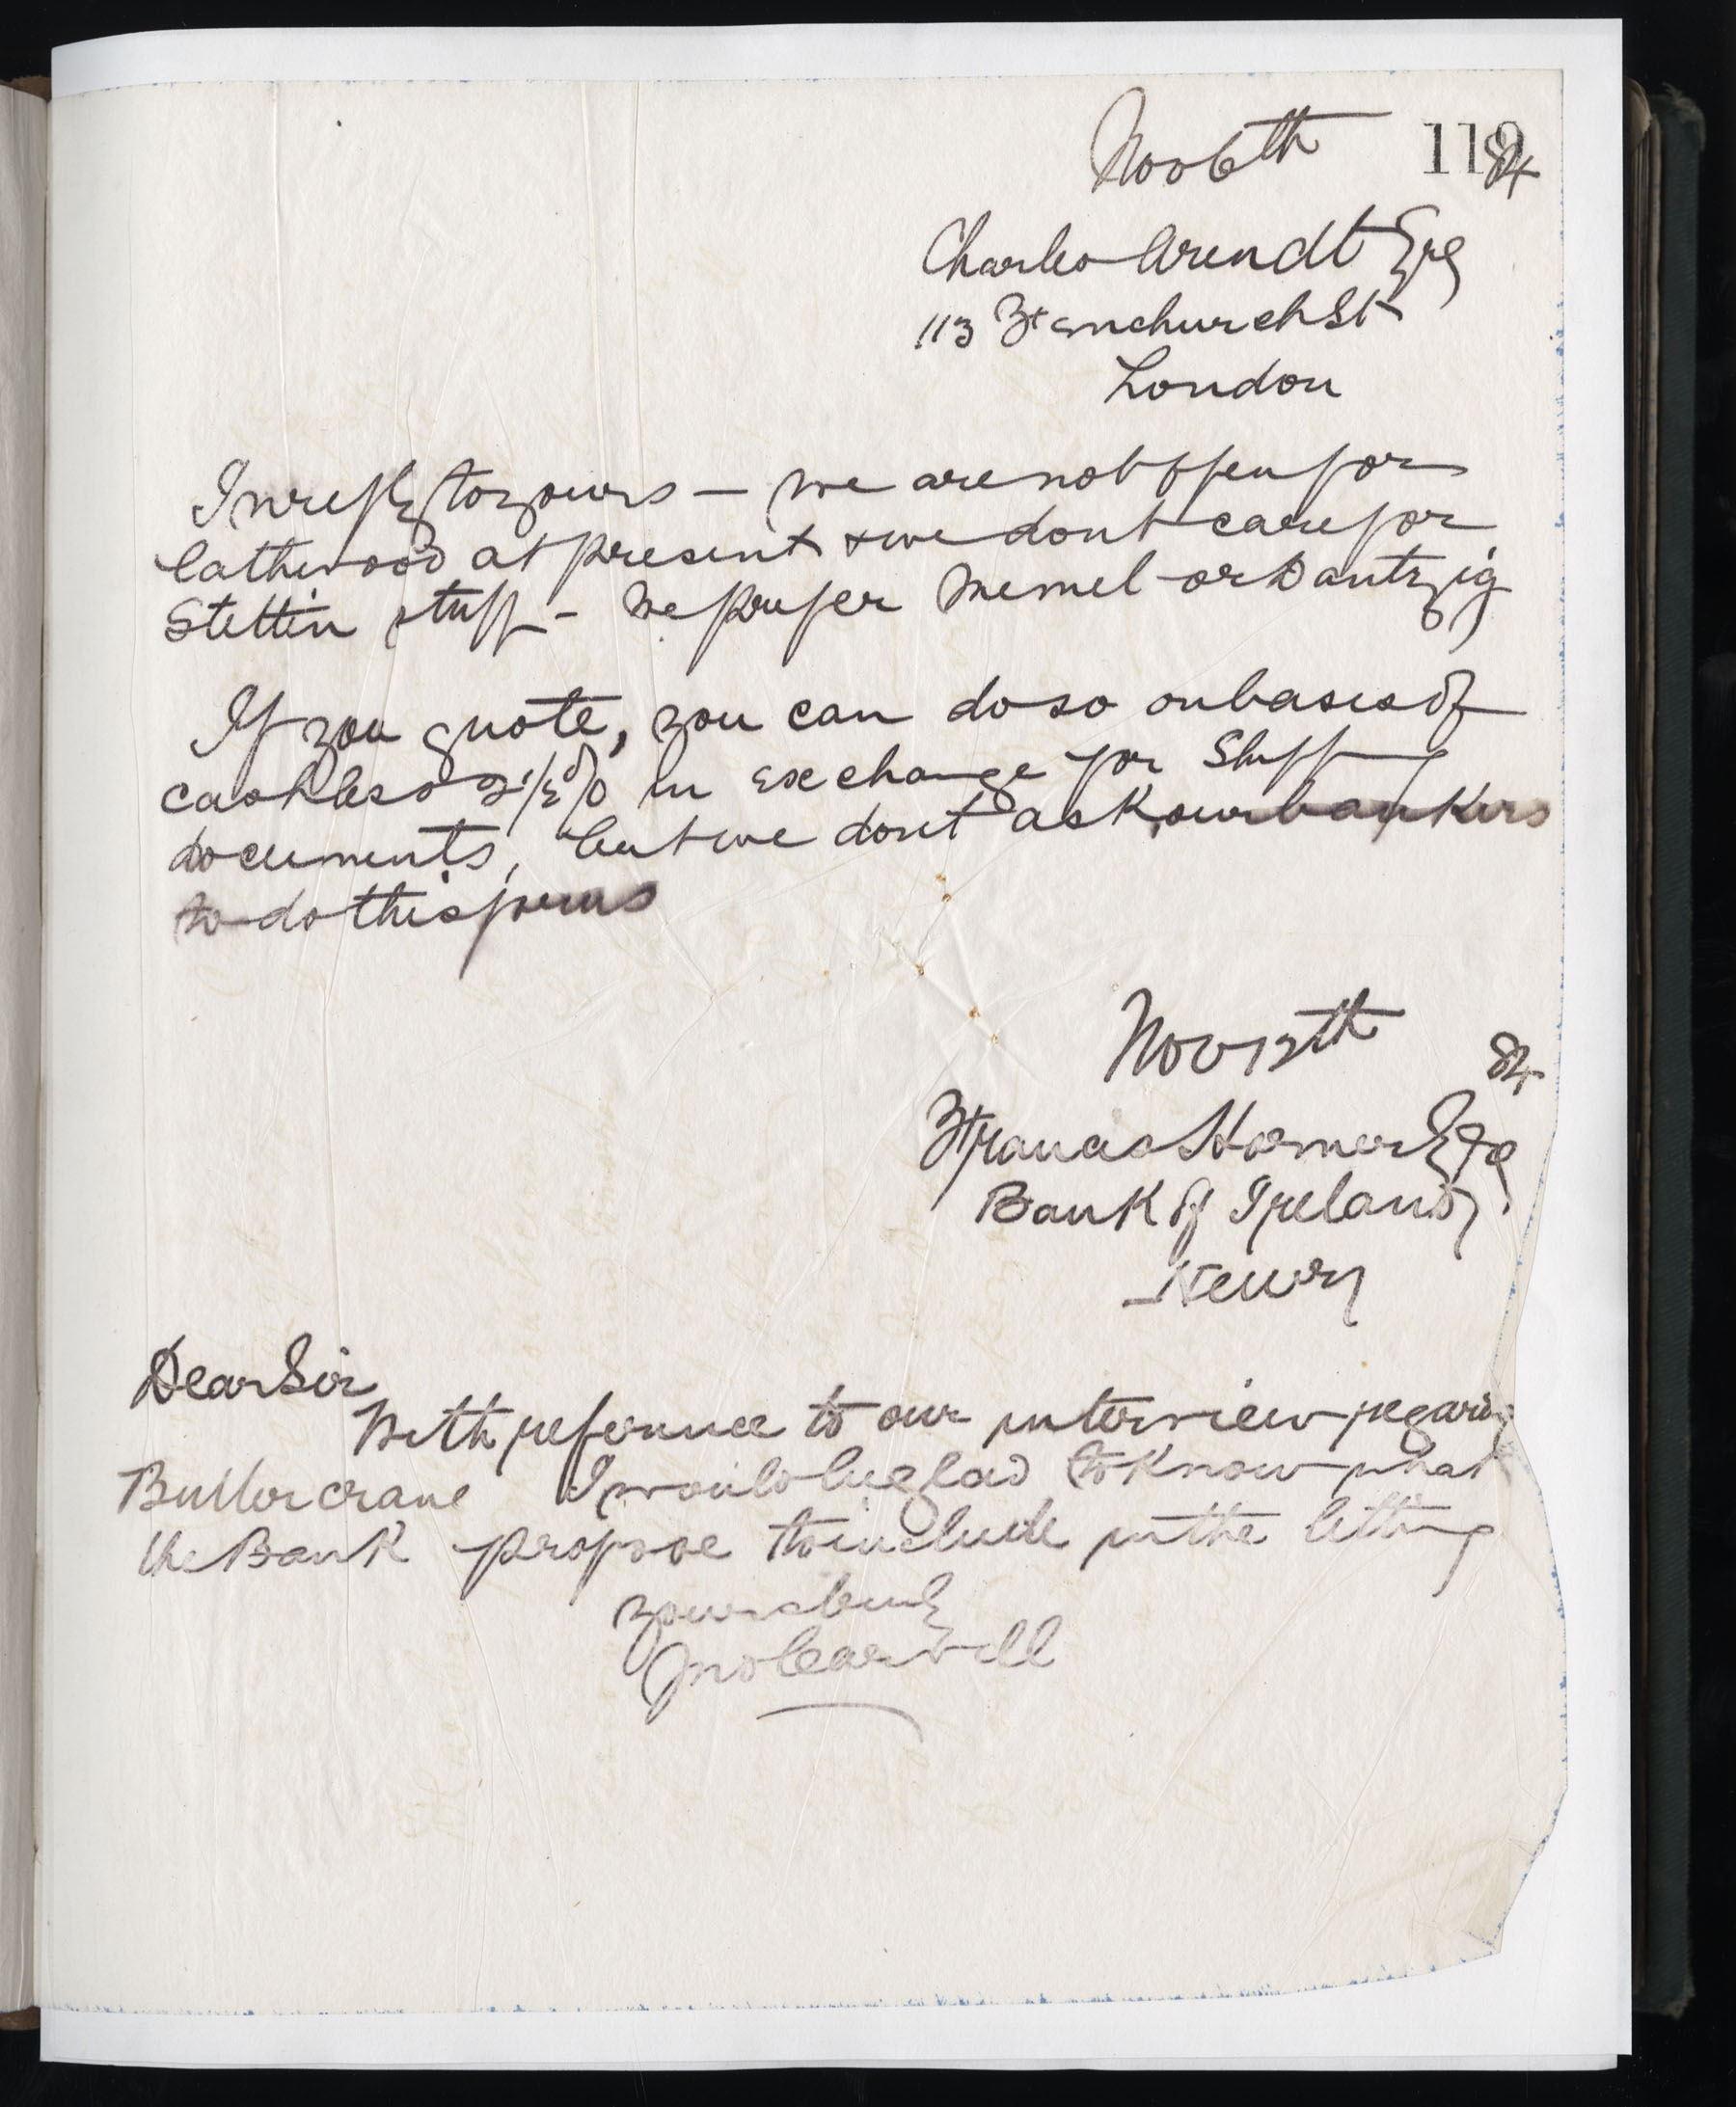 Nov 6th 84
119
Charles Arendt Esq
113 Fenchurch St
London
In reply to yours — we are not open for
lathwood at present & we dont care for
Stettin stuff - We prefer Memel or Dantzig
If you quote, you can do so on basis of
cash less 2 1/2 % in exchange for Shipping
documents, but we dont ask our bankers
to do this for us
Nov 12th 84
Francis Horner Esq
Bank of Ireland
Newry
Dear Sir
With reference to our interview regarding
Buttercrane I would be glad to know what
the Bank propose to include in the letting
yours truly
Jno Carvill